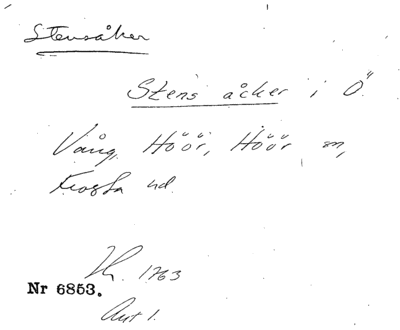 Stensåker
Stens åcker i Ö
Vång, Höör, Höör sn,
Frosta hd.
Hr. 1763
Nr 6853.
Akt 1.